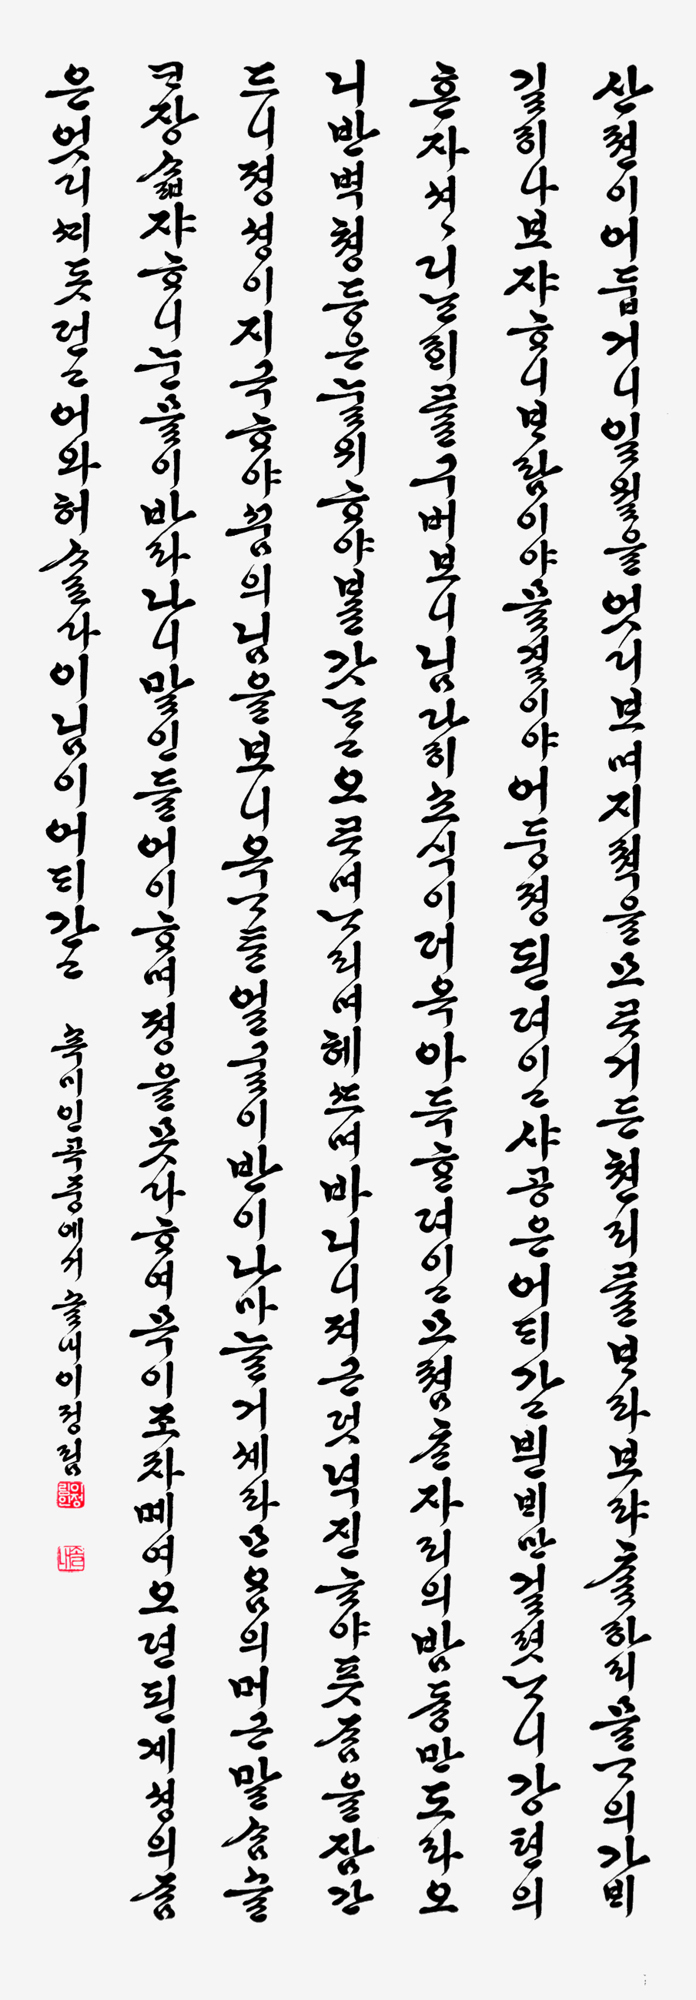 산쳔이어둡거니일월을엇디보며지쳑을모ᄅᆞ거든쳔리ᄅᆞᆯᄇᆞ라보랴ᄎᆞᆯ하리믈ᄀᆞ의가ᄇᆡ
길히나보쟈ᄒᆞ니ᄇᆞ람이야믈결이야어둥졍된뎌이고샤공은어ᄃᆡ가고븬ᄇᆡ만걸렷ᄂᆞ니강텬의
혼자셔〻디ᄂᆞᆫᄒᆡᄅᆞᆯ구버보니님다히쇼식이더옥아득ᄒᆞᆫ뎌이고모쳠ᄎᆞᆫ자리의밤듕만도라오
니반벽쳥등은눌위ᄒᆞ야ᄇᆞᆯ갓ᄂᆞᆫ고오ᄅᆞ며ᄂᆞ리며헤ᄯᅳ며바니니져근덧녁진ᄒᆞ야픗ᄌᆞᆷ을잠간
드니졍셩이지극ᄒᆞ야ᄭᅮᆷ의님을보니옥ᄀᆞᄐᆞᆫ얼굴이반이나마늘거셰라ᄆᆞᄋᆞᆷ의머근말ᄉᆞᆷ슬
코장ᄉᆞᆲ쟈ᄒᆞ니눈믈이바라나니말인들어이ᄒᆞ며졍을못다ᄒᆞ여목이조차메여오뎐된계셩의ᄌᆞᆷ
은엇디ᄭᆡ돗던고어와허ᄉᆞ로다이님이어ᄃᆡ간고
속미인곡중에서 솔내이정림
이정림
솔내